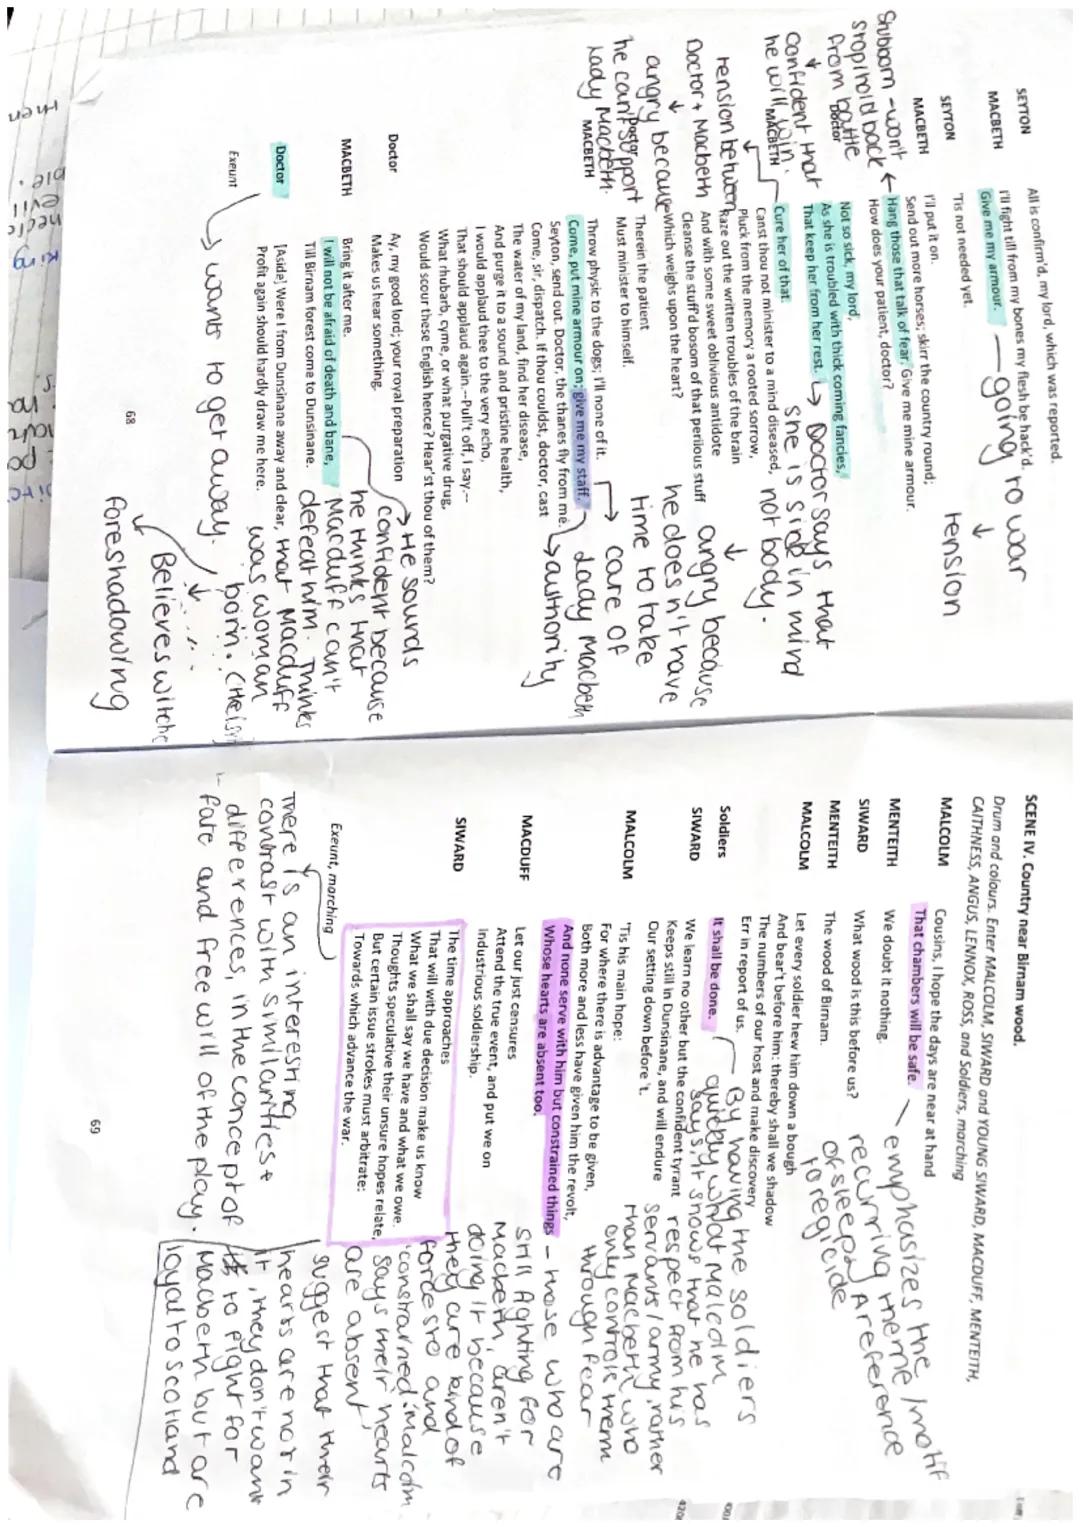 SEYTON All is confirm'd, my lord, which was reported.
MACBETH I'll fight till from my bones my flesh be hack'd.
Give me my armour. — going to war
↓
tension
SEYTON 'Tis not needed yet.
MACBETH I'll put it on.
Send out more horses; skirr the country round;
Hang those that talk of fear. Give me mine armour.
How does your patient, doctor?
Stubborn - won't
stop/hold back
from battle
Doctor Not so sick, my lord,
As she is troubled with thick coming fancies,
That keep her from her rest.
Doctor says that
she is sick in mind
not body.
confident that
he will win.
MACBETH Cure her of that.
Canst thou not minister to a mind diseased,
Pluck from the memory a rooted sorrow,
Raze out the written troubles of the brain
And with some sweet oblivious antidote
Cleanse the stuff'd bosom of that perilous stuff
Which weighs upon the heart?
tension between
Doctor + Macbeth
↓
angry because
he can't support
Lady Macbeth.
↓
angry because
he doesn't have
time to take
care of
Lady Macbeth
Doctor Therein the patient
Must minister to himself.
MACBETH Throw physic to the dogs; I'll none of it.
Come, put mine armour on; give me my staff.
Seyton, send out. Doctor, the thanes fly from me.
→ authority
Come, sir, dispatch. If thou couldst, doctor, cast
The water of my land, find her disease,
And purge it to a sound and pristine health,
I would applaud thee to the very echo,
That should applaud again.--Pull't off, I say.--
What rhubarb, cyme, or what purgative drug,
Would scour these English hence? Hear'st thou of them?
Doctor Ay, my good lord; your royal preparation
Makes us hear something.
→ He sounds
confident because
he thinks that
Macduff can't
defeat him. Thinks
that Macduff
was woman
born.
MACBETH Bring it after me.
I will not be afraid of death and bane,
Till Birnam forest come to Dunsinane.
Doctor [Aside] Were I from Dunsinane away and clear,
Profit again should hardly draw me here.
Exeunt
→ wants to get away.
Believes witche
foreshadowing
68
SCENE IV. Country near Birnam wood.
Drum and colours. Enter MALCOLM, SIWARD and YOUNG SIWARD, MACDUFF, MENTEITH,
CAITHNESS, ANGUS, LENNOX, ROSS, and Soldiers, marching
MALCOLM Cousins, I hope the days are near at hand
That chambers will be safe.
emphasizes the
recurring theme/motif
of sleep. A reference
to regicide
MENTEITH We doubt it nothing.
SIWARD What wood is this before us?
MENTEITH The wood of Birnam.
MALCOLM Let every soldier hew him down a bough
And bear't before him: thereby shall we shadow
The numbers of our host and make discovery
Err in report of us.
Soldiers It shall be done.
By having the soldiers
quickly what Malcolm
says, it shows that he has
respect from his
servants/army, rather
than Macbeth, who
only controls them
through fear
SIWARD We learn no other but the confident tyrant
Keeps still in Dunsinane, and will endure
Our setting down before 't.
MALCOLM 'Tis his main hope:
For where there is advantage to be given,
Both more and less have given him the revolt,
And none serve with him but constrained things
Whose hearts are absent too.
- those who are
still fighting for
Macbeth, aren't
doing it because
they are kind of
forced to and
'constrained'. Malcolm
says their 'hearts
are absent'
suggest that their
hearts are not in
it, they don't want
to fight for
Macbeth but are
loyal to Scotland
MACDUFF Let our just censures
Attend the true event, and put we on
Industrious soldiership.
SIWARD The time approaches
That will with due decision make us know
What we shall say we have and what we owe.
Thoughts speculative their unsure hopes relate,
But certain issue strokes must arbitrate:
Towards which advance the war.
Exeunt, marching
There is an interesting
contrast with similarities +
differences, in the concept of
fate and free will of the play.
69